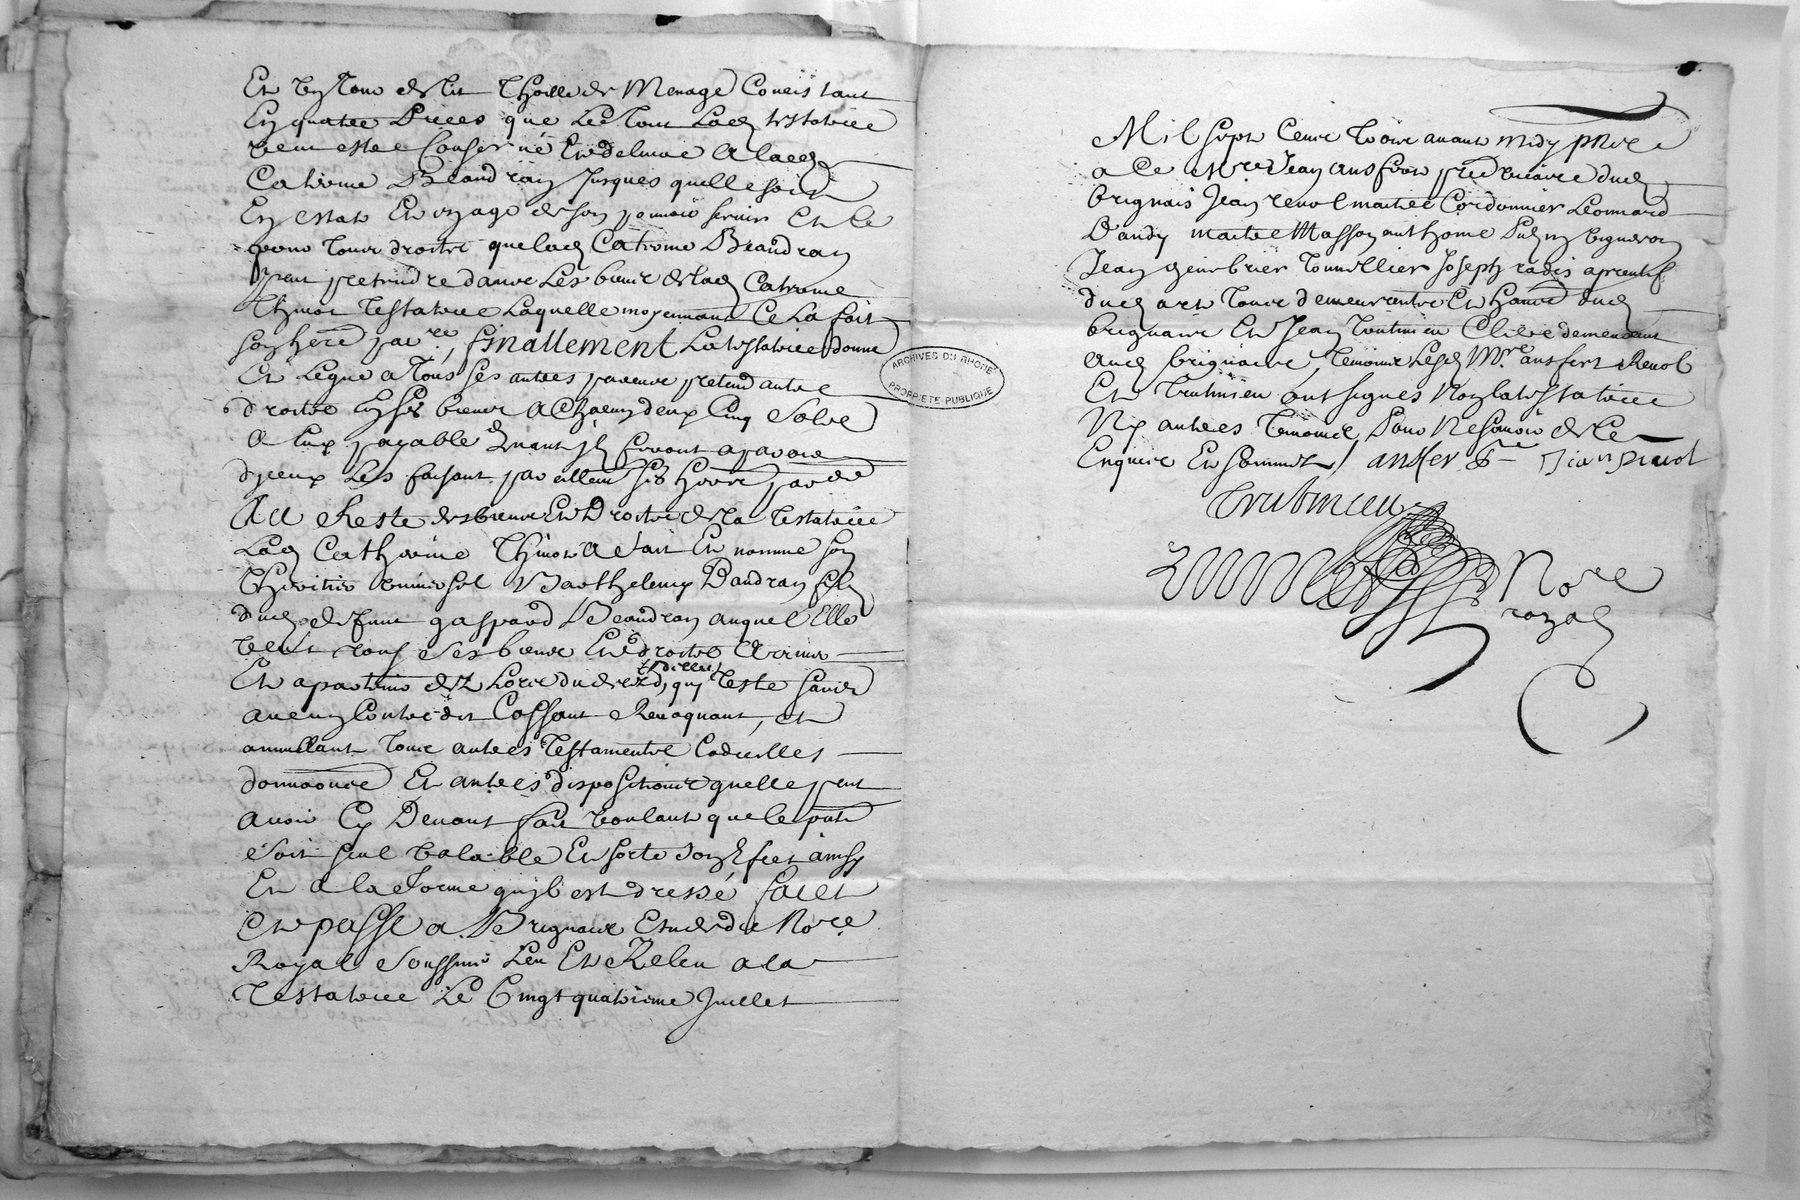 Et un Tour de lit Thoille de Menage Concistant
En quatre Pieces que Led Tour Lad testatrice
veut estre Conservé Et delivré a lacd
Catherine Beaudran Jusques quelle soit
En estat En uzage de son pouvoir servir Et ce
pour tous droitz que lad Catherine Beaudran
peut pretendre dans Les biens de lad Catherine
Thinot Testatrice Laquelle moyennant Ce La fait
son here par re, finallement La testatrice donne
Et Legue a Tous ses autres parens pretendantz
droitz En ses biens a Chacun deux Cinq Solz
a Eux payable quant ilz feront aparoir
diceux Les faisant par illeux ses heres par res
Au Reste des biens Et Droitz de La Testatrice
Lad Catherine Thinot a fait Et nommé son
Heritier universel Barthelemy Baudran filz
dud def funt gaspard Beaudran auquel Elle
veut tous ses biens Et droitz Arriver
Et apartenir dez Lheure du decez d'icelle qui Teste sans
aucun Contredit Cassant Revoquant, et
annullant Tous autres Testamentz Codicilles
donnaons Et autres dispositions quelle peut
avoir Cy Devant fait voulant que le pnt
soit seul valable Et sorte son Effect ainsy
Et a la forme quil est dressé fait
Et passé a Brignais Estude du Nore
Royal Soussigné Leu Et Releu a la
Testatrice Le Vingt quatrieme Juillet
ARCHIVES DU RHONE
PROPRIETE PUBLIQUE
Mil sept Cens Trois avant midy pnce
a Ce Mre Jean ansfert pbre vicaire dud
brignais Jean renol maitre Cordonnier Leonnard
Dandy maitre Masson anthoine vigneron
Jean genebrier Tonnellier Joseph radis aprentif
dud art Tous demeurentz Et hantz dud
brignais Et Jean Trubinieu Clerc demeurant
aud brignais, Temoins Lesd Mre ansfert Renol
Et Trubinieu ont signés Non la testatrice
Ny autres Temoins Pour Ne scavoir de Ce
Enquis Et sommés / ansfer Jean Renol
Trubinieu
Nore
royal